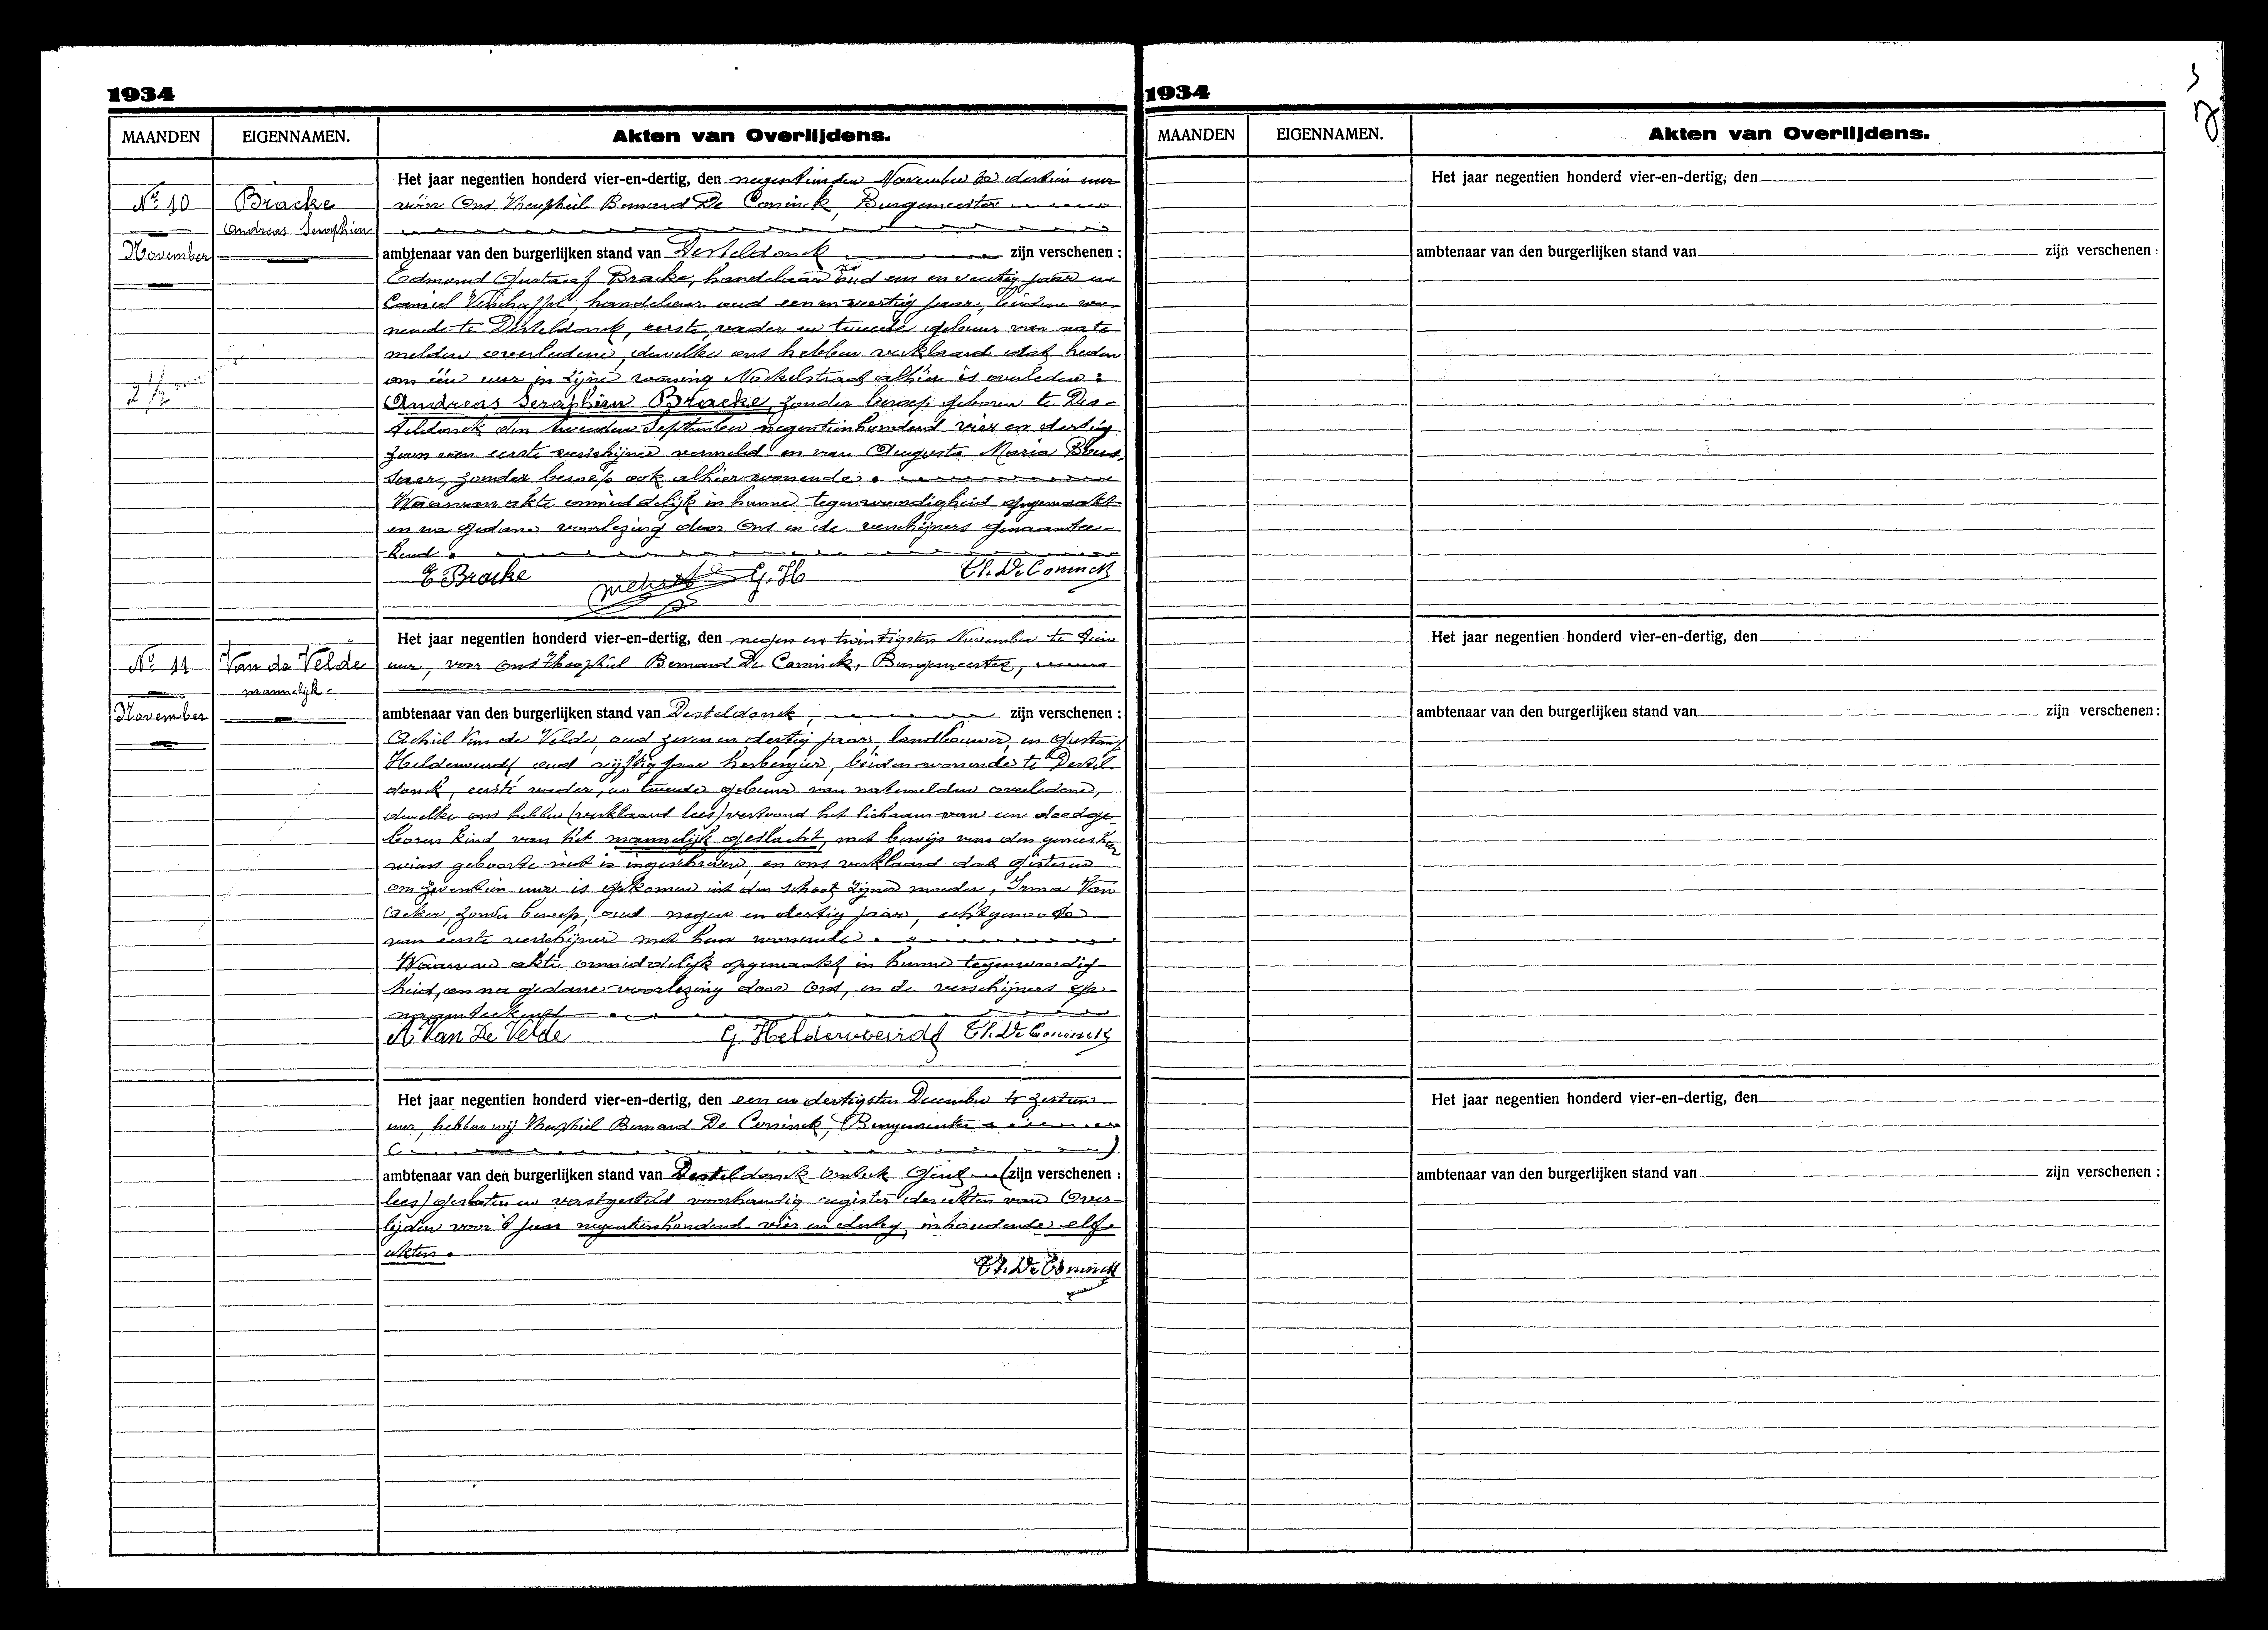 1934
MAANDEN EIGENNAMEN. Akten van Overlijdens.
Nº 10
November
Bracke
Andreas Seraphien
Het jaar negentien honderd vier-en-dertig, den negentienden November te dertien uur
vóór Ons Theophiel Bernard De Coninck, Burgemeester
ambtenaar van den burgerlijken stand van Desteldonck zijn verschenen :
Edmond Gustaaf Bracke, handelaar oud een en veertig jaar en
Camiel Verschaffel, handelaar oud een en veertig jaar, beiden wo-
nende te Desteldonck, eerste vader en tweede gebuur van na te
melden overledene, dewelke ons hebben verklaard dat heden
om één uur in zijne woning alhier is overleden :
Andreas Seraphien Bracke, zonder beroep geboren te Des-
teldonck den tweeden September negentienhonderd vier en dertig
zoon van eerste verschijner vermeld en van Augusta Maria
zonder beroep ook alhier wonende.
Waarvan akte onmiddelijk in hunne tegenwoordigheid opgemaakt
en na gedane voorlezing door Ons en de verschijners genaamtee-
kend.
E Bracke G. H Th. De Coninck
Nº 11
November
Van de Velde
mannelijk
Het jaar negentien honderd vier-en-dertig, den negen en twintigsten November te tien
uur, voor ons Theophiel Bernard De Coninck, Burgemeester,
ambtenaar van den burgerlijken stand van Desteldonck, zijn verschenen :
Achiel Van de Velde, oud zeven en dertig jaar, landbouwer, en Gustaaf
Helderweirdt, oud vijftig jaar herbergier, beiden wonende te Destel-
donck, eerste vader, en tweede gebuur van natemelden overledene,
dewelke ons hebben (verklaard lees) vertoond het lichaam van een doodge-
boren kind van het mannelijk geslacht, met bewijs van den geneesheer
wiens geboorte niet is ingeschreven, en ons verklaard dat gisteren
om zeventien uur is gekomen uit den schoot zijner moeder, Irma Van
Acker, zonder beroep, oud negen en dertig jaar, echtgenoote
van eerste verschijner met hem wonende.
Waarvan akte onmiddelijk opgemaakt in hunne tegenwoordig-
heid, en na gedane voorlezing door Ons, en de verschijners ge-
naamteekend
A. Van De Velde G. Helderweirdt Th. De Coninck
Het jaar negentien honderd vier-en-dertig, den een en dertigsten December te zestien
uur, hebben wij Theophiel Bernard De Coninck, Burgemeester
ambtenaar van den burgerlijken stand van Desteldonck Gent (zijn verschenen :
lees) gesloten en vastgesteld voorhandig register der akten van Over-
lijden voor 't jaar negentienhonderd vier en dertig, inhoudende elf
akten.
Th. De Coninck
1934
MAANDEN EIGENNAMEN. Akten van Overlijdens.
Het jaar negentien honderd vier-en-dertig, den
ambtenaar van den burgerlijken stand van zijn verschenen :
Het jaar negentien honderd vier-en-dertig, den
ambtenaar van den burgerlijken stand van zijn verschenen :
Het jaar negentien honderd vier-en-dertig, den
ambtenaar van den burgerlijken stand van zijn verschenen :